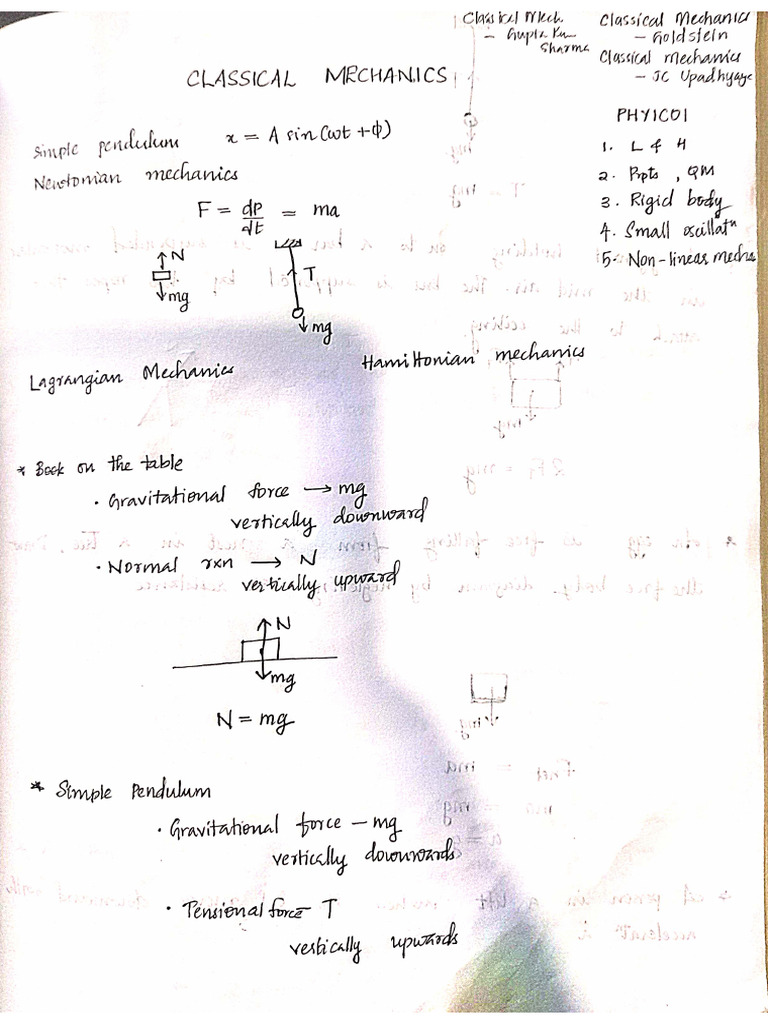 Classical Mech.
- Gupta Kum
Sharma
Classical Mechanics
- Goldstein
Classical mechanics
- JC Upadhyaye
CLASSICAL MECHANICS
PHY1C01
1. L & H
2. Ppts, QM
3. Rigid body
4. Small oscillatn
5. Non-linear mecha
Simple pendulum x = A sin(ωt + φ)
Newtonian mechanics
F = dp/dt = ma
N
mg
T
mg
Lagrangian Mechanics
Hamiltonian mechanics
* Book on the table
· Gravitational force → mg
vertically downward
· Normal rxn → N
vertically upward
N
mg
N = mg
* Simple Pendulum
· Gravitational force - mg
vertically downwards
· Tensional force - T
vertically upwards